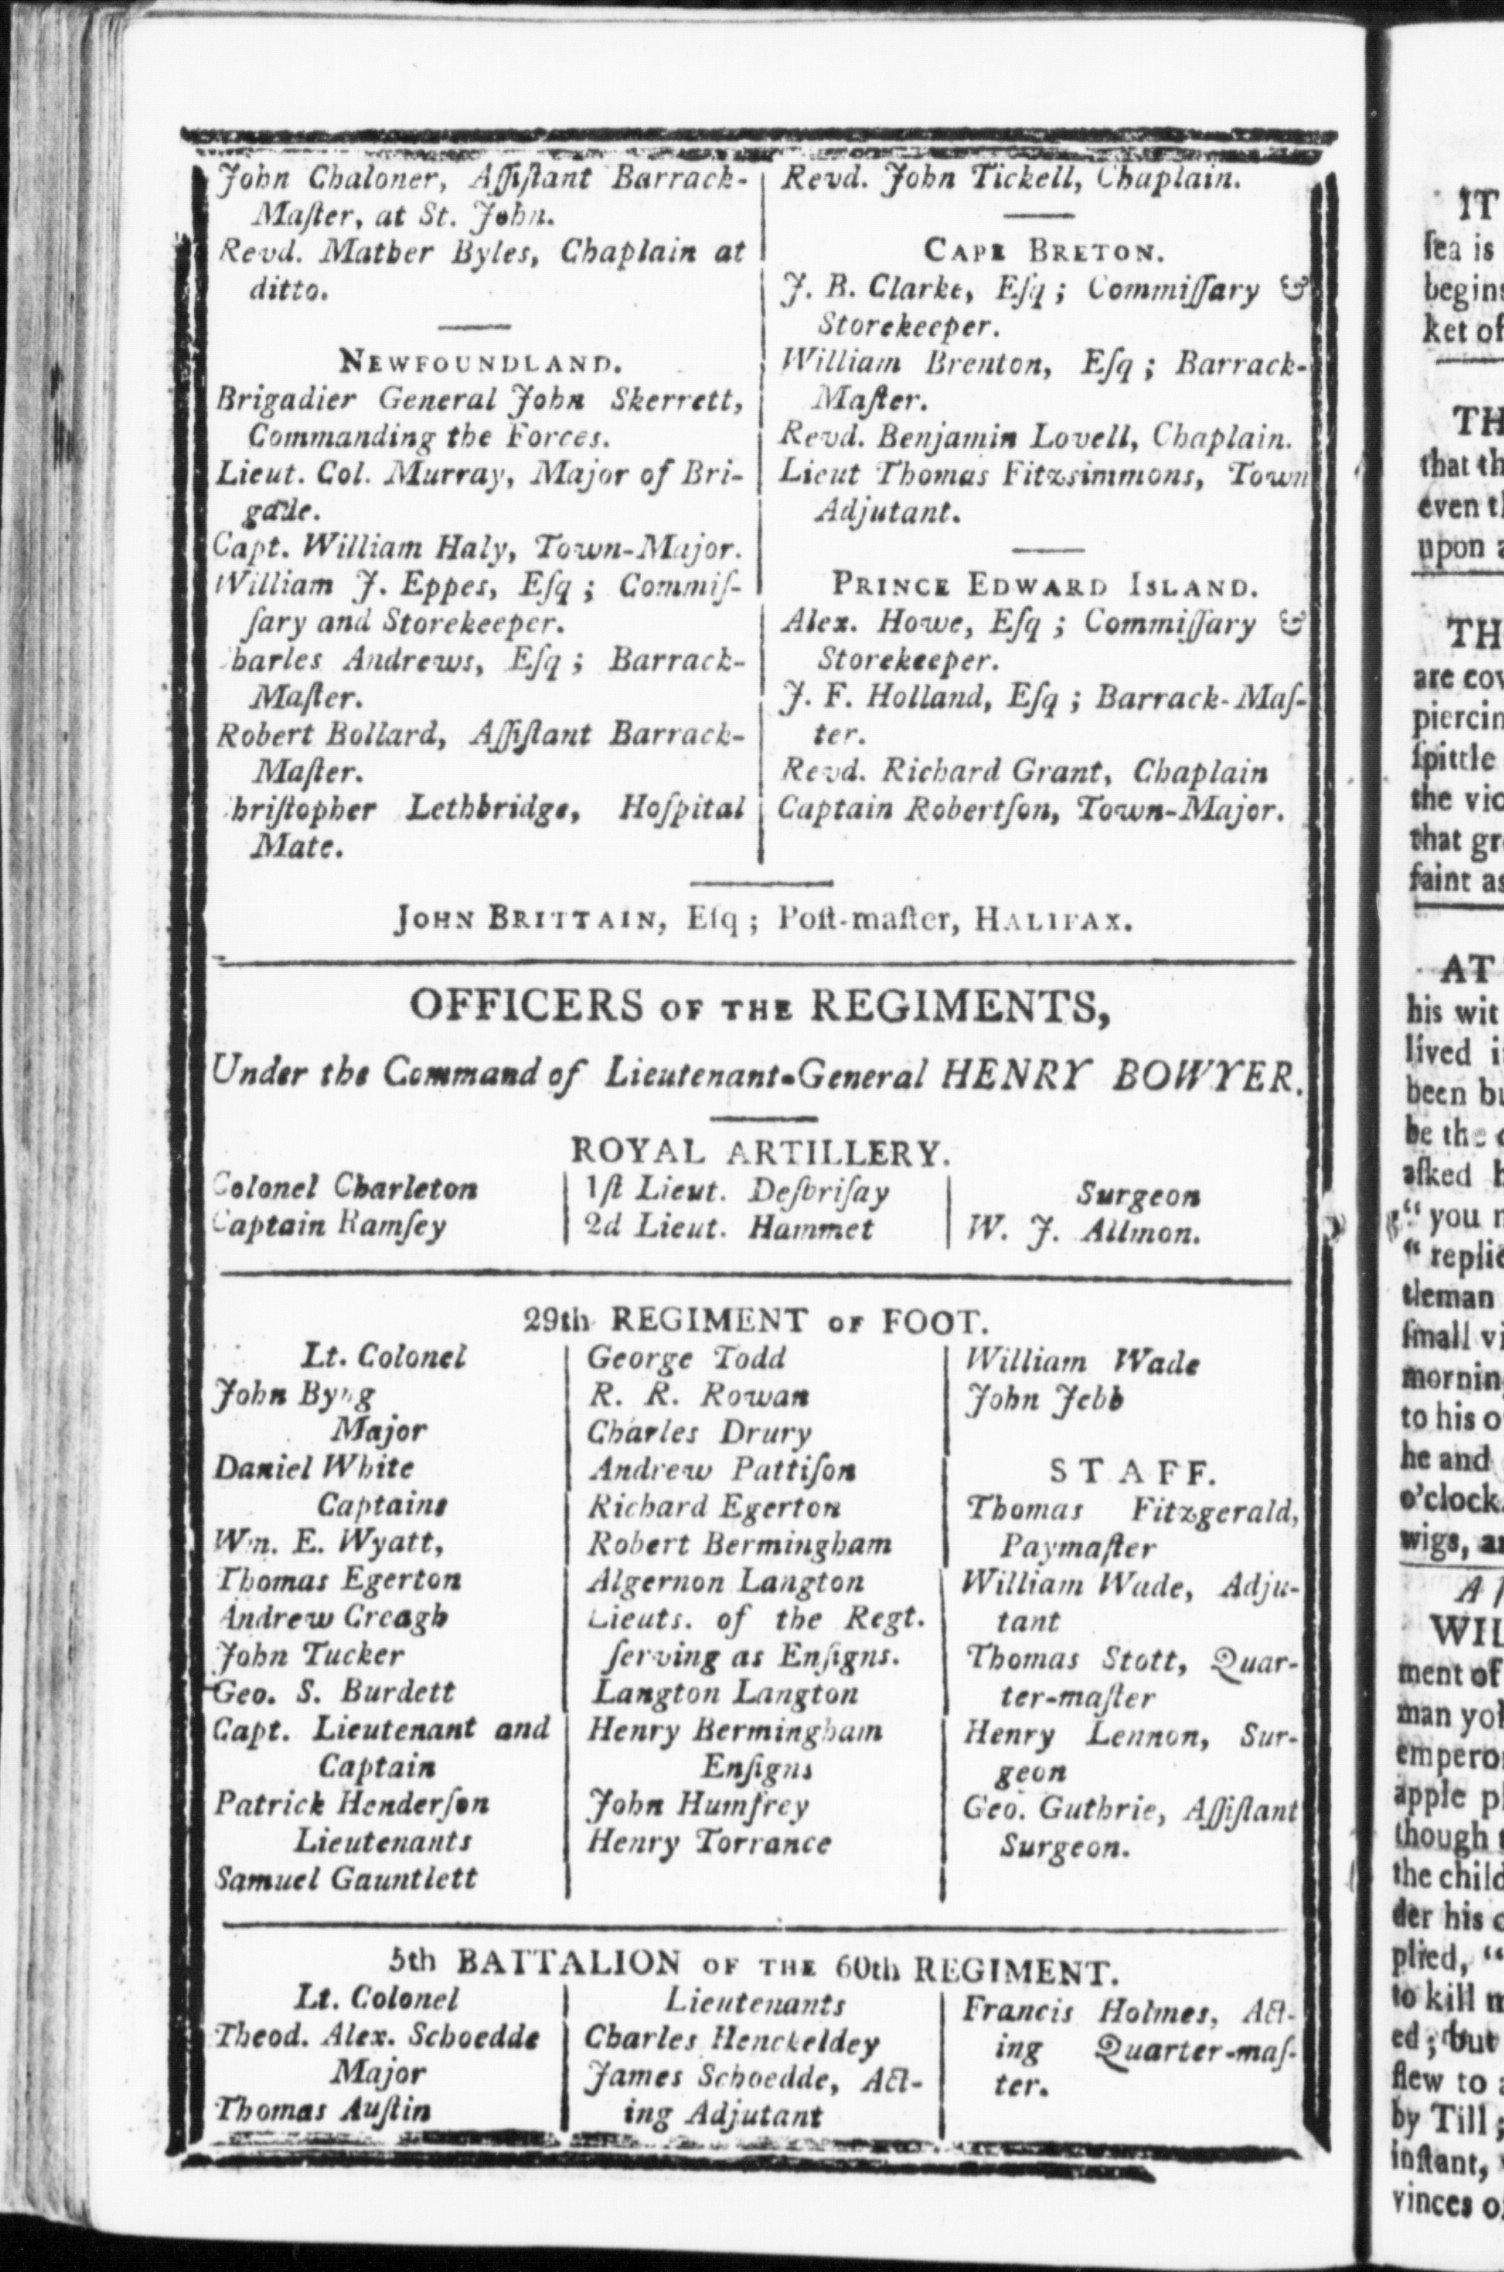 John Chaloner, Aſſiſtant Barrack-
Maſter, at St. John.
Revd. Mather Byles, Chaplain at
ditto.
NEWFOUNDLAND.
Brigadier General John Skerrett,
Commanding the Forces.
Lieut. Col. Murray, Major of Bri-
gade.
Capt. William Haly, Town-Major.
William J. Eppes, Eſq; Commiſ-
ſary and Storekeeper.
Charles Andrews, Eſq; Barrack-
Maſter.
Robert Bollard, Aſſiſtant Barrack-
Maſter.
Chriſtopher Lethbridge, Hoſpital
Mate.
Revd. John Tickell, Chaplain.
CAPE BRETON.
J. B. Clarke, Eſq; Commiſſary &
Storekeeper.
William Brenton, Eſq; Barrack-
Maſter.
Revd. Benjamin Lovell, Chaplain.
Lieut Thomas Fitzsimmons, Town
Adjutant.
PRINCE EDWARD ISLAND.
Alex. Howe, Eſq; Commiſſary &
Storekeeper.
J. F. Holland, Eſq; Barrack-Maſ-
ter.
Revd. Richard Grant, Chaplain
Captain Robertſon, Town-Major.
JOHN BRITTAIN, Eſq; Poſt-maſter, HALIFAX.
OFFICERS OF THE REGIMENTS,
Under the Command of Lieutenant-General HENRY BOWYER.
ROYAL ARTILLERY.
Colonel Charleton
Captain Ramſey
1ſt Lieut. Deſbriſay
2d Lieut. Hammet
Surgeon
W. J. Allmon.
29th REGIMENT OF FOOT.
Lt. Colonel
John Byng
Major
Daniel White
Captains
Wm. E. Wyatt,
Thomas Egerton
Andrew Creagh
John Tucker
Geo. S. Burdett
Capt. Lieutenant and
Captain
Patrick Henderſon
Lieutenants
Samuel Gauntlett
George Todd
R. R. Rowan
Charles Drury
Andrew Pattiſon
Richard Egerton
Robert Bermingham
Algernon Langton
Lieuts. of the Regt.
ſerving as Enſigns.
Langton Langton
Henry Bermingham
Enſigns
John Humfrey
Henry Torrance
William Wade
John Jebb
STAFF.
Thomas Fitzgerald,
Paymaſter
William Wade, Adju-
tant
Thomas Stott, Quar-
ter-maſter
Henry Lennon, Sur-
geon
Geo. Guthrie, Aſſiſtant
Surgeon.
5th BATTALION OF THE 60th REGIMENT.
Lt. Colonel
Theod. Alex. Schoedde
Major
Thomas Auſtin
Lieutenants
Charles Henckeldey
James Schoedde, Act-
ing Adjutant
Francis Holmes, Act-
ing Quarter-maſ-
ter.
IT
ſea is
begins
ket of
TH
that th
even th
upon a
TH
are cov
piercin
ſpittle
the vio
that gr
faint as
AT
his wit
lived i
been bu
be the
aſked h
"you
"replie
tleman
ſmall vi
morning
to his o
he and
o'clock.
wigs, an
A
WIL
ment of
man yo
emperor
apple p
though
the child
der his c
plied, "
to kill m
ed; but
flew to
by Till;
inſtant,
vinces of